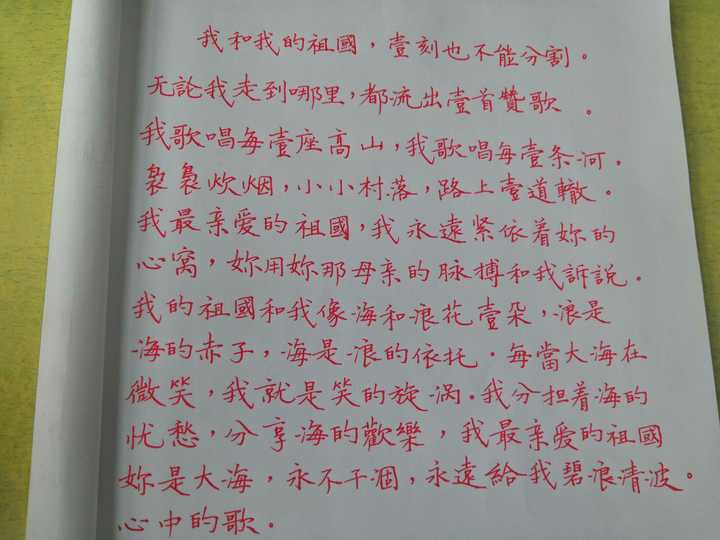 我和我的祖國，壹刻也不能分割。
无論我走到哪里，都流出壹首贊歌。
我歌唱每壹座高山，我歌唱每壹条河，
裊裊炊烟，小小村落，路上壹道轍。
我最亲爱的祖國，我永遠紧依着妳的
心窩，妳用妳那母亲的脉搏和我訴説。
我的祖國和我像海和浪花壹朵，浪是
海的赤子，海是浪的依托。每當大海在
微笑，我就是笑的旋涡．我分担着海的
忧愁，分享海的歡樂，我最亲爱的祖國
妳是大海，永不干涸，永遠給我碧浪清波。
心中的歌．